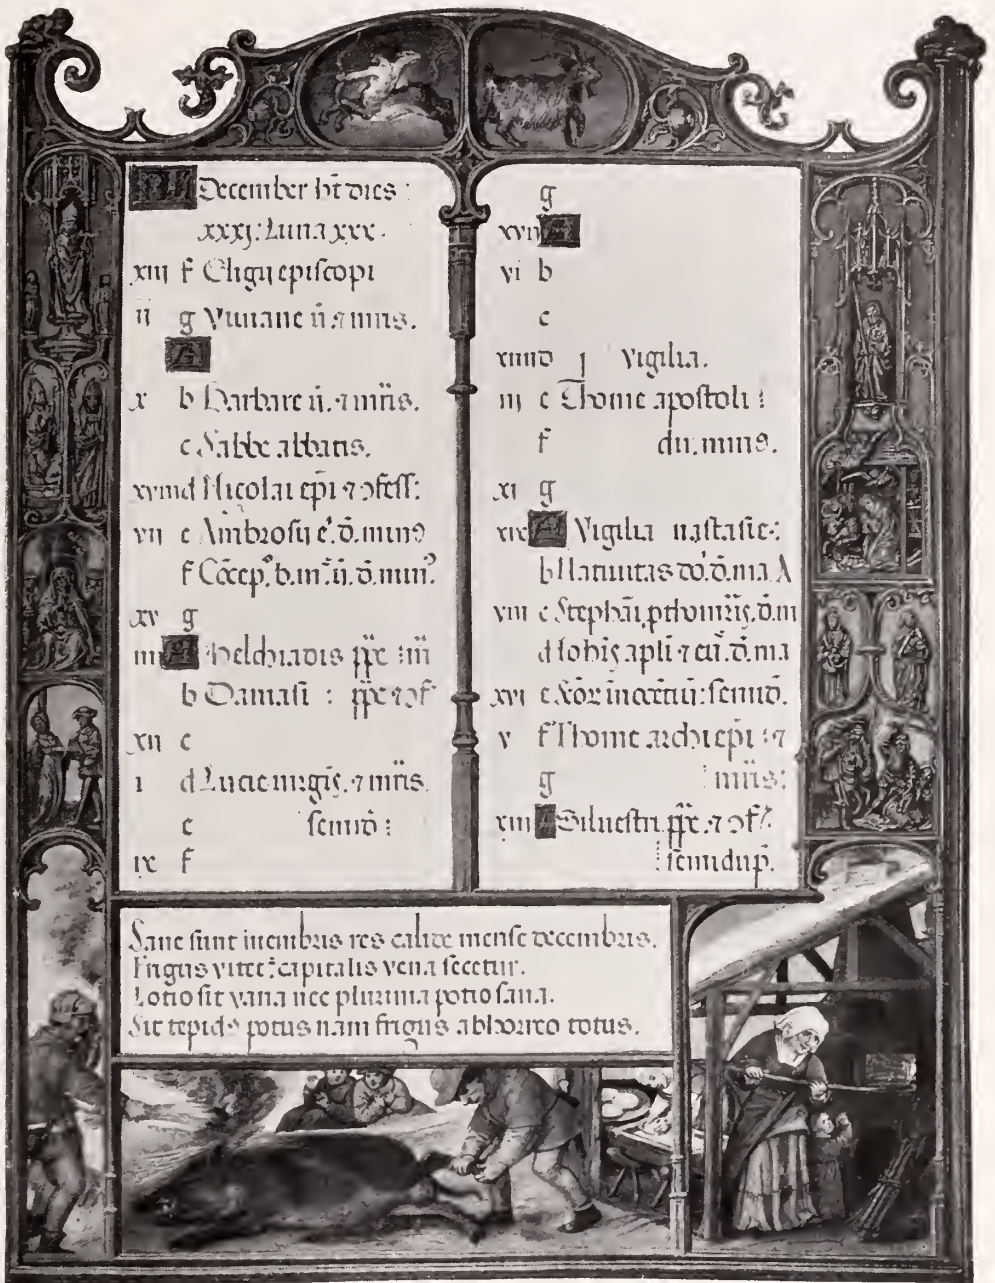 KL December ht dies :
xxxj: Luna xxx.
xiii f Eligii episcopi
ii g Viviane v. ⁊ mris.
A
x b Barbare v. ⁊ mris.
c Sabbe abbatis.
xviii d Nicolai epi ⁊ ↄfess:
vii e Ambrosii e'. d. minꝰ
f Cōcep. b. m. v. d. min.
xv g
iiii A Melchiadis ppe : m
b Damasi : ppe ⁊ ↄf
xii c
i d Lucie virgis. ⁊ mris.
e semid :
ix f
g
xvii A
vi b
c
xiiii d j Vigilia.
iii e Thome apostoli :
f du. minꝰ.
xi g
xix A Vigilia nastasie:
b Nativitas do. d. ma A
viii c Stephani pthomris. d. m
d Iohis apli ⁊ eu. d. ma
xvi e innocētiu: semid.
v f Thome archiepi : ⁊
g : mris:
xiii A Silvestri. ppe. ⁊ ↄf
: semidup.
Sane sunt membris res calide mense decembris.
Frigus vitet: capitalis vena scecetur.
Lotio sit vana nec plurima potio sana.
Sit tepidꝰ potus nam frigus abhorreo totus.